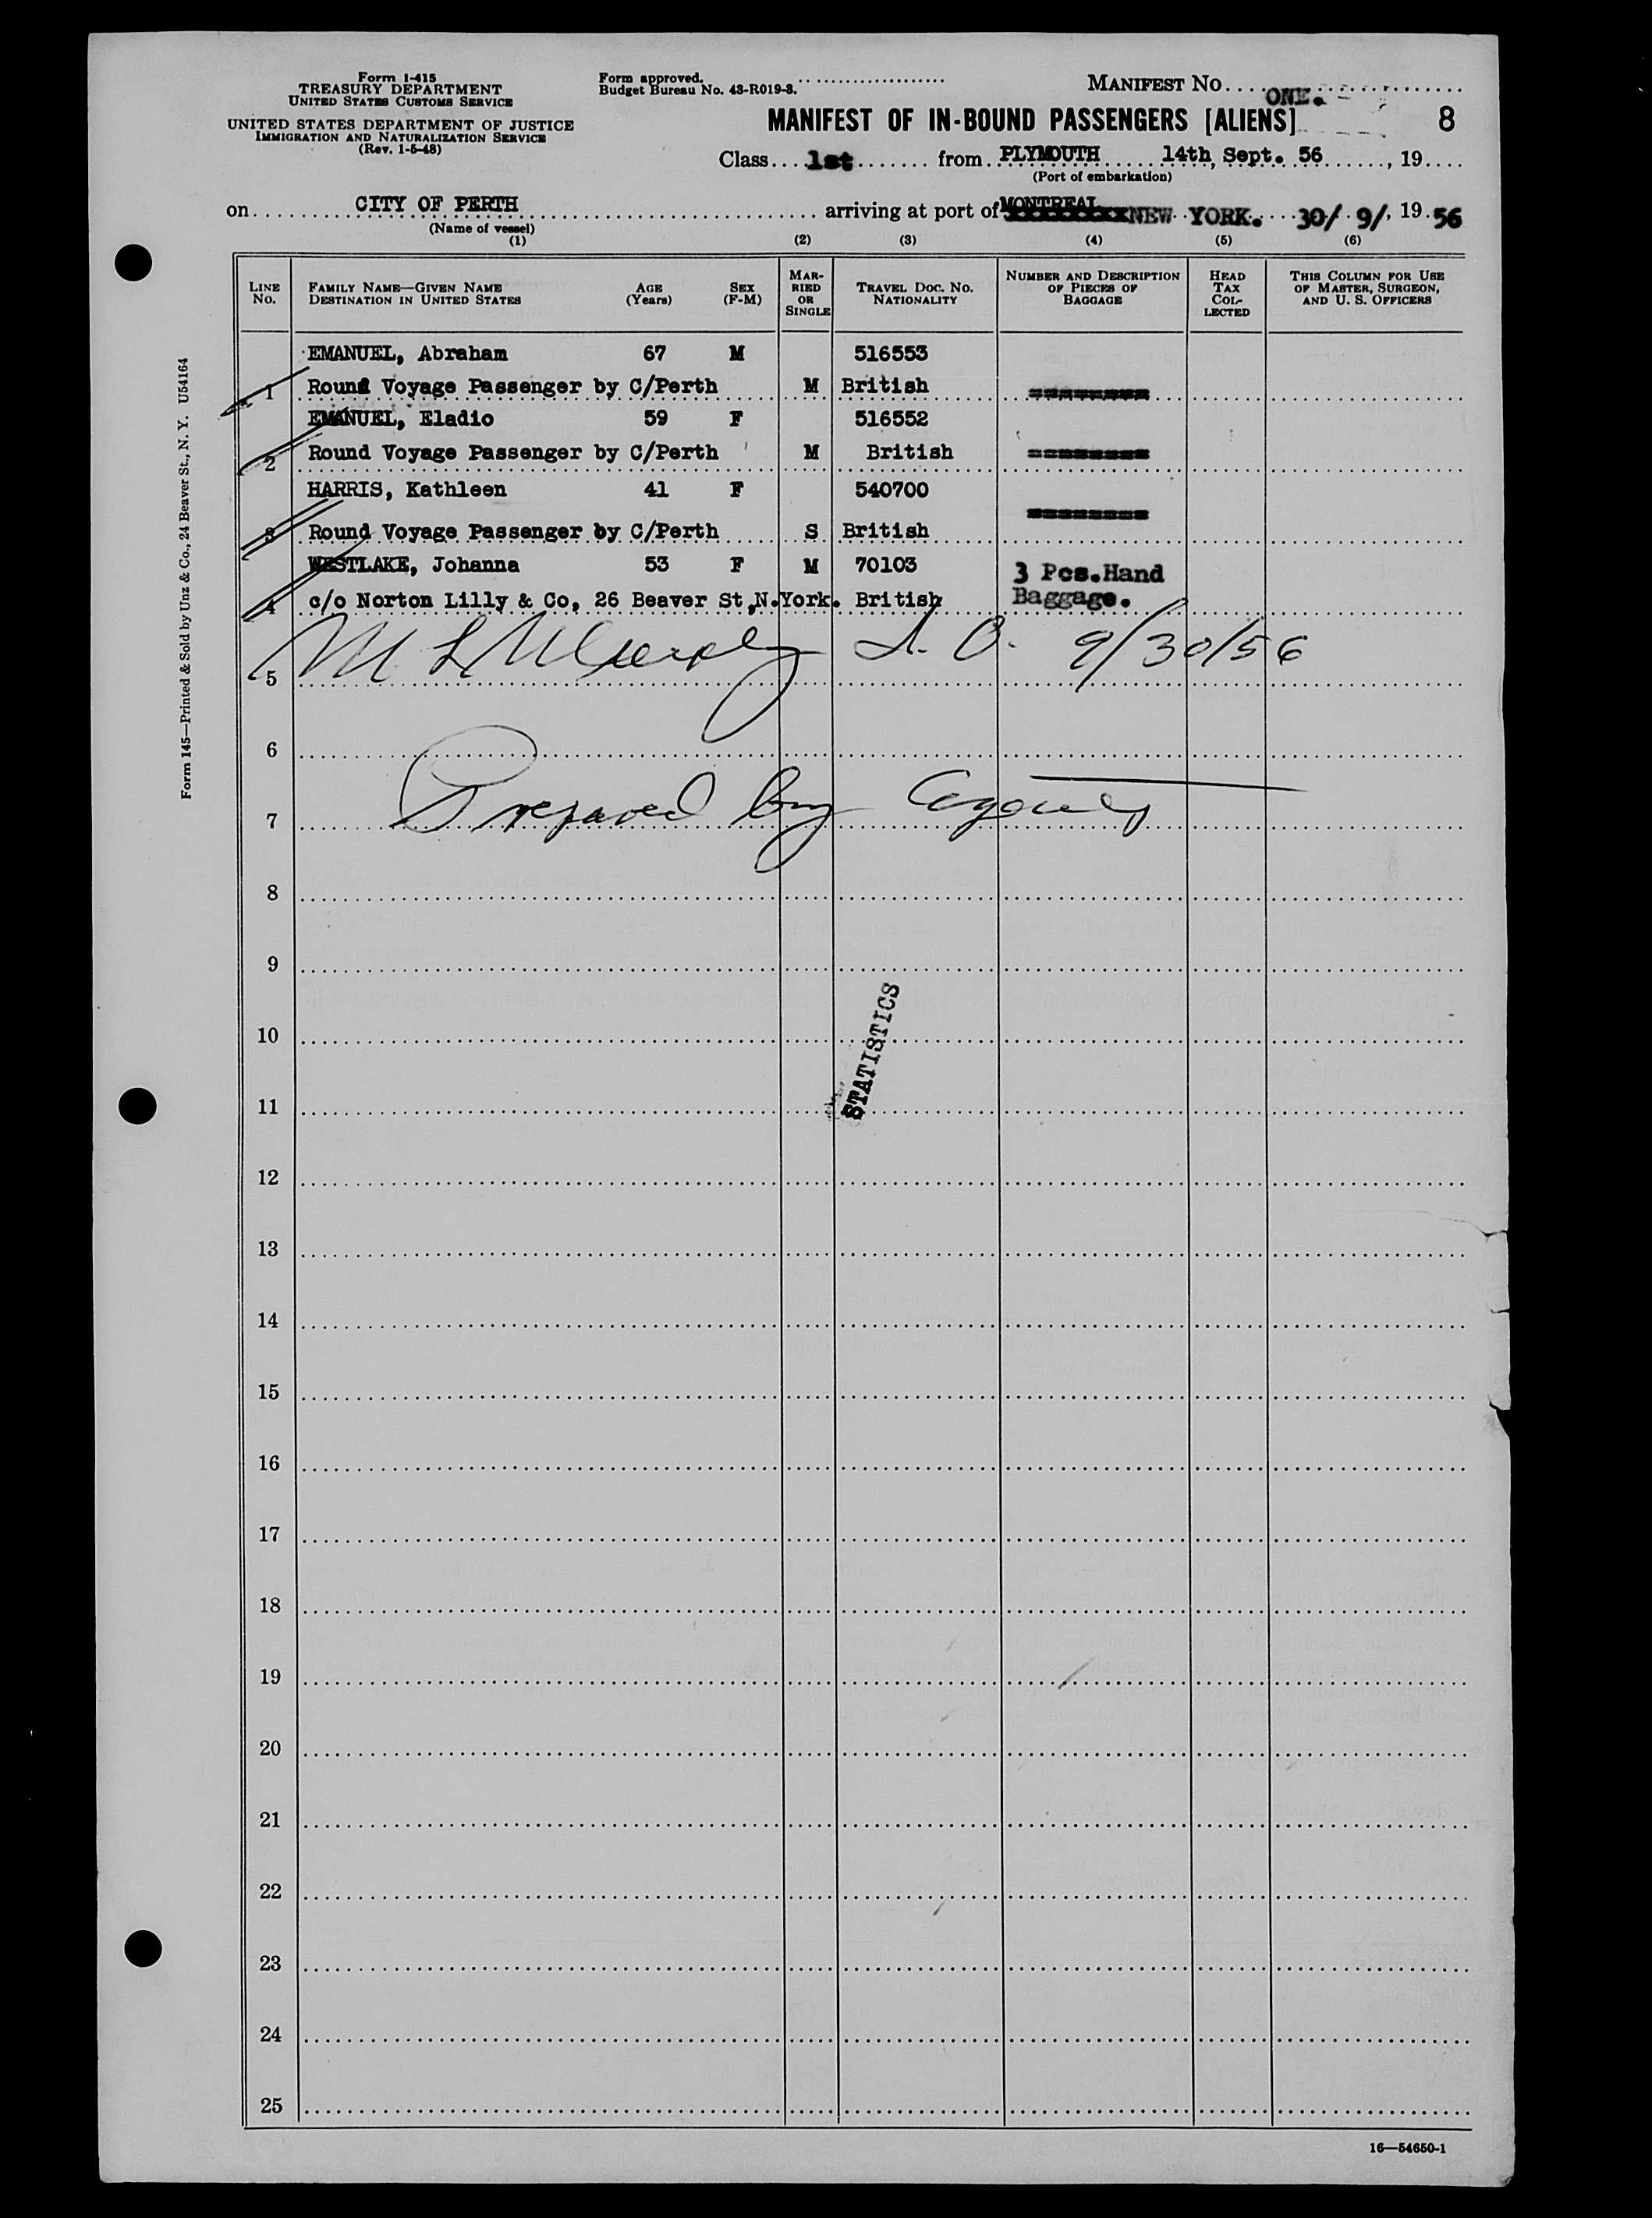 Form I-415
TREASURY DEPARTMENT
UNITED STATES CUSTOMS SERVICE
UNITED STATES DEPARTMENT OF JUSTICE
IMMIGRATION AND NATURALIZATION SERVICE
(Rev. 1-5-48)
Form approved.
Budget Bureau No. 43-R019-3.
MANIFEST NO. ONE.
MANIFEST OF IN-BOUND PASSENGERS [ALIENS] 8
Class 1st from PLYMOUTH 14th, Sept. 56, 19
(Port of embarkation)
on CITY OF PERTH arriving at port of MONTREAL NEW YORK. 30/ 9/, 19 56
(Name of vessel)
(1) (2) (3) (4) (5) (6)
LINE No. FAMILY NAME—GIVEN NAME DESTINATION IN UNITED STATES AGE (Years) SEX (F-M) MARRIED OR SINGLE TRAVEL DOC. NO. NATIONALITY NUMBER AND DESCRIPTION OF PIECES OF BAGGAGE HEAD TAX COLLECTED THIS COLUMN FOR USE OF MASTER, SURGEON, AND U. S. OFFICERS
EMANUEL, Abraham 67 M 516553
1 Round Voyage Passenger by C/Perth M British
EMANUEL, Eladio 59 F 516552
2 Round Voyage Passenger by C/Perth M British
HARRIS, Kathleen 41 F 540700
3 Round Voyage Passenger by C/Perth S British
WESTLAKE, Johanna 53 F M 70103 3 Pcs.Hand
4 c/o Norton Lilly & Co, 26 Beaver St,N.York. British Baggage.
5 I. O. 9/30/56
6
7 Prepared by Agents
8
9
10
STATISTICS
11
12
13
14
15
16
17
18
19
20
21
22
23
24
25
16—54650-1
Form 145—Printed & Sold by Unz & Co., 24 Beaver St., N. Y. U54164